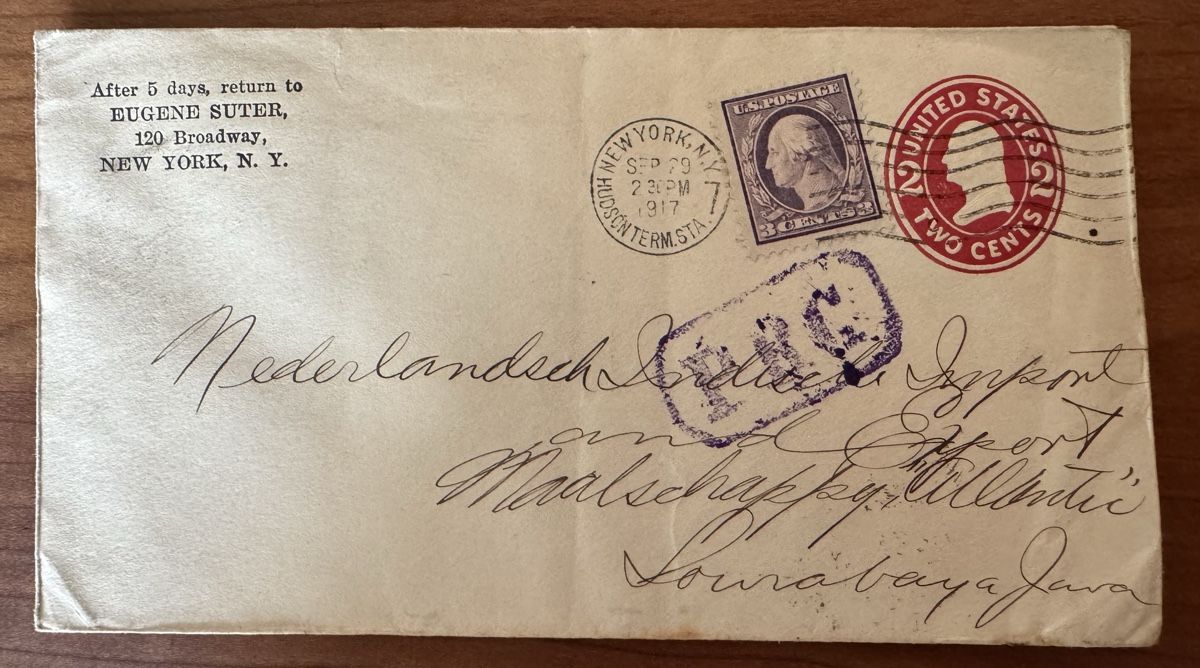 After 5 days, return to
EUGENE SUTER,
120 Broadway,
NEW YORK, N. Y.
NEW YORK, N.Y.
SEP 29
2 30 PM
1917
HUDSON TERM. STA.
U.S. POSTAGE
3 CENTS 3
UNITED STATES
2 2
TWO CENTS
Nederlandsch Indische Import
and Export
Maatschappy, "Atlantic"
Sourabaya Java